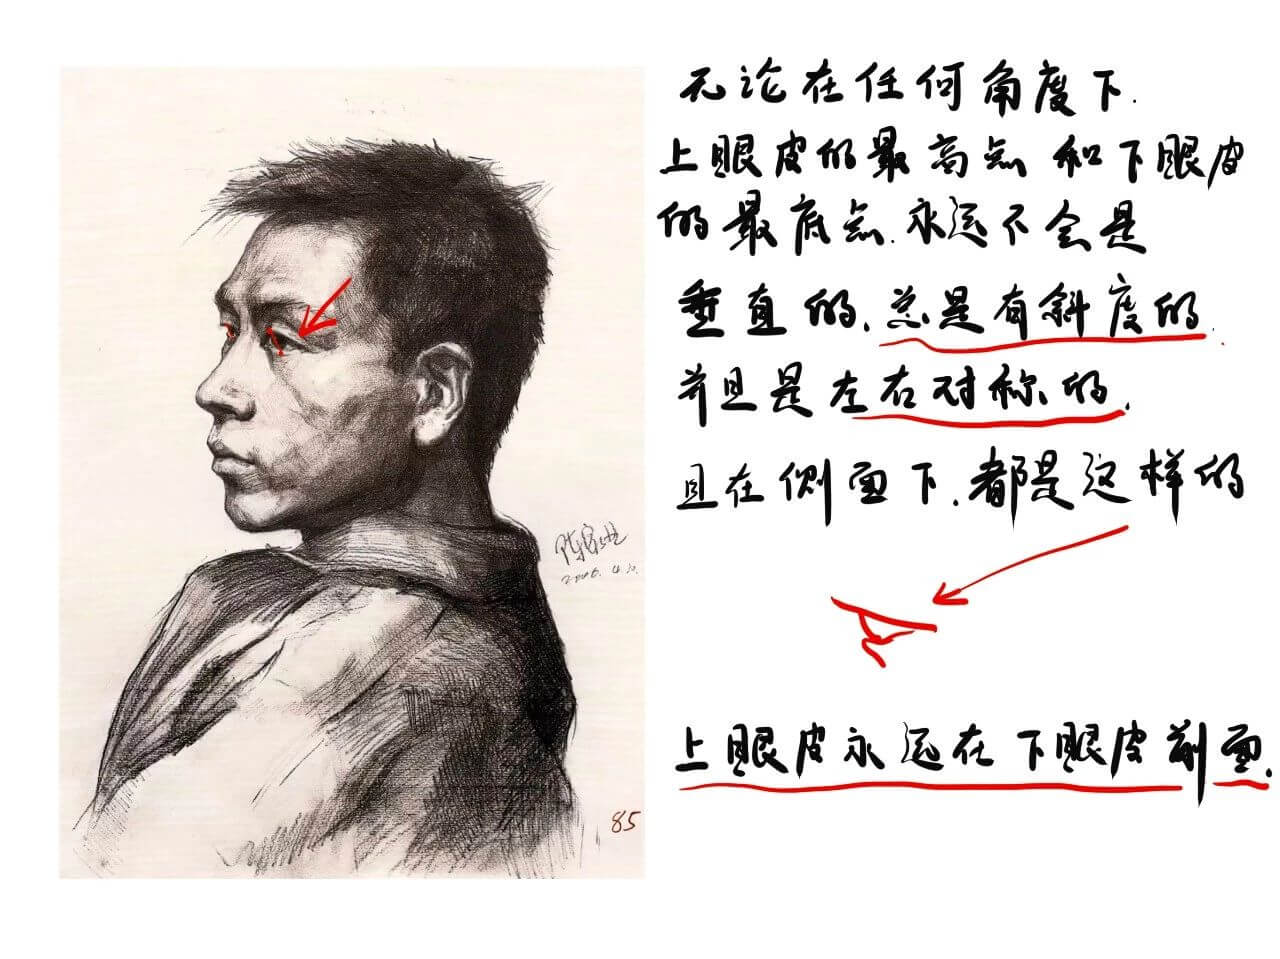 无论在任何角度下.
上眼皮的最高点和下眼皮
的最底点.永远不会是
垂直的、总是有斜度的.
并且是左右对称的.
且在侧面下.都是这样的
2006.4.
85
上眼皮永远在下眼皮前面.